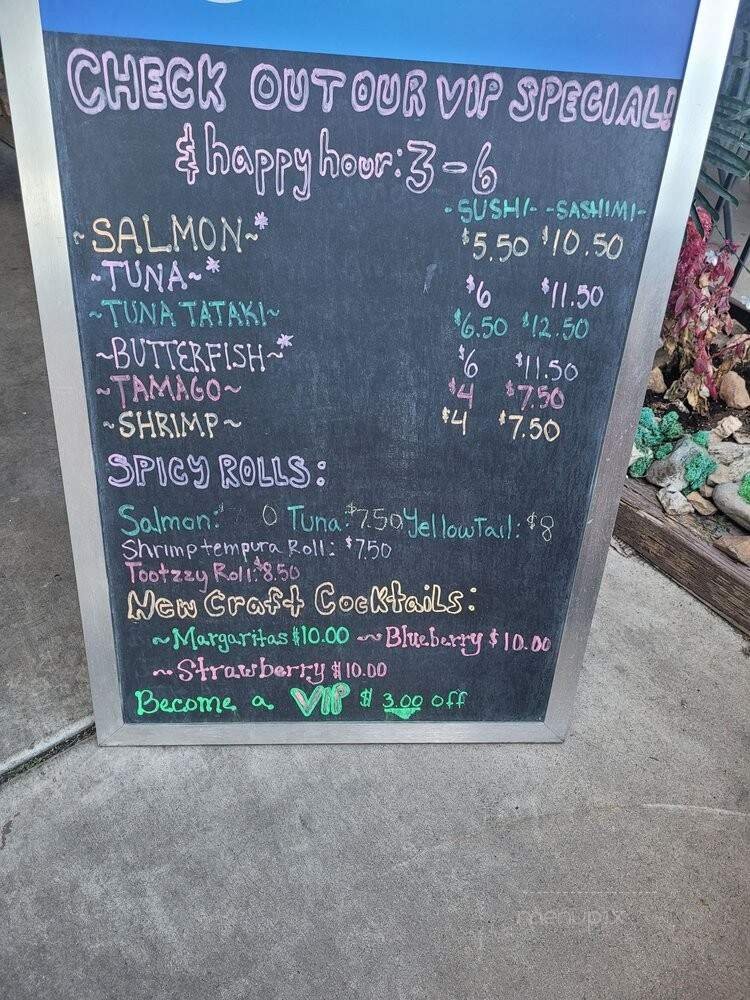 CHECK OUT OUR VIP SPECIAL!
& happy hour: 3-6
-SUSHI- -SASHIMI-
~SALMON~* $5.50 $10.50
~TUNA~* $6 $11.50
~TUNA TATAKI~ $6.50 $12.50
~BUTTERFISH~* $6 $11.50
~TAMAGO~ $4 $7.50
~SHRIMP~ $4 $7.50
SPICY ROLLS:
Salmon: $ 0 Tuna: $7.50 YellowTail: $8
Shrimp tempura Roll: $7.50
Tootzzy Roll: $8.50
New Craft Cocktails:
~Margaritas $10.00 ~~ Blueberry $10.00
~Strawberry $10.00
Become a VIP $ 3.00 off
menupix